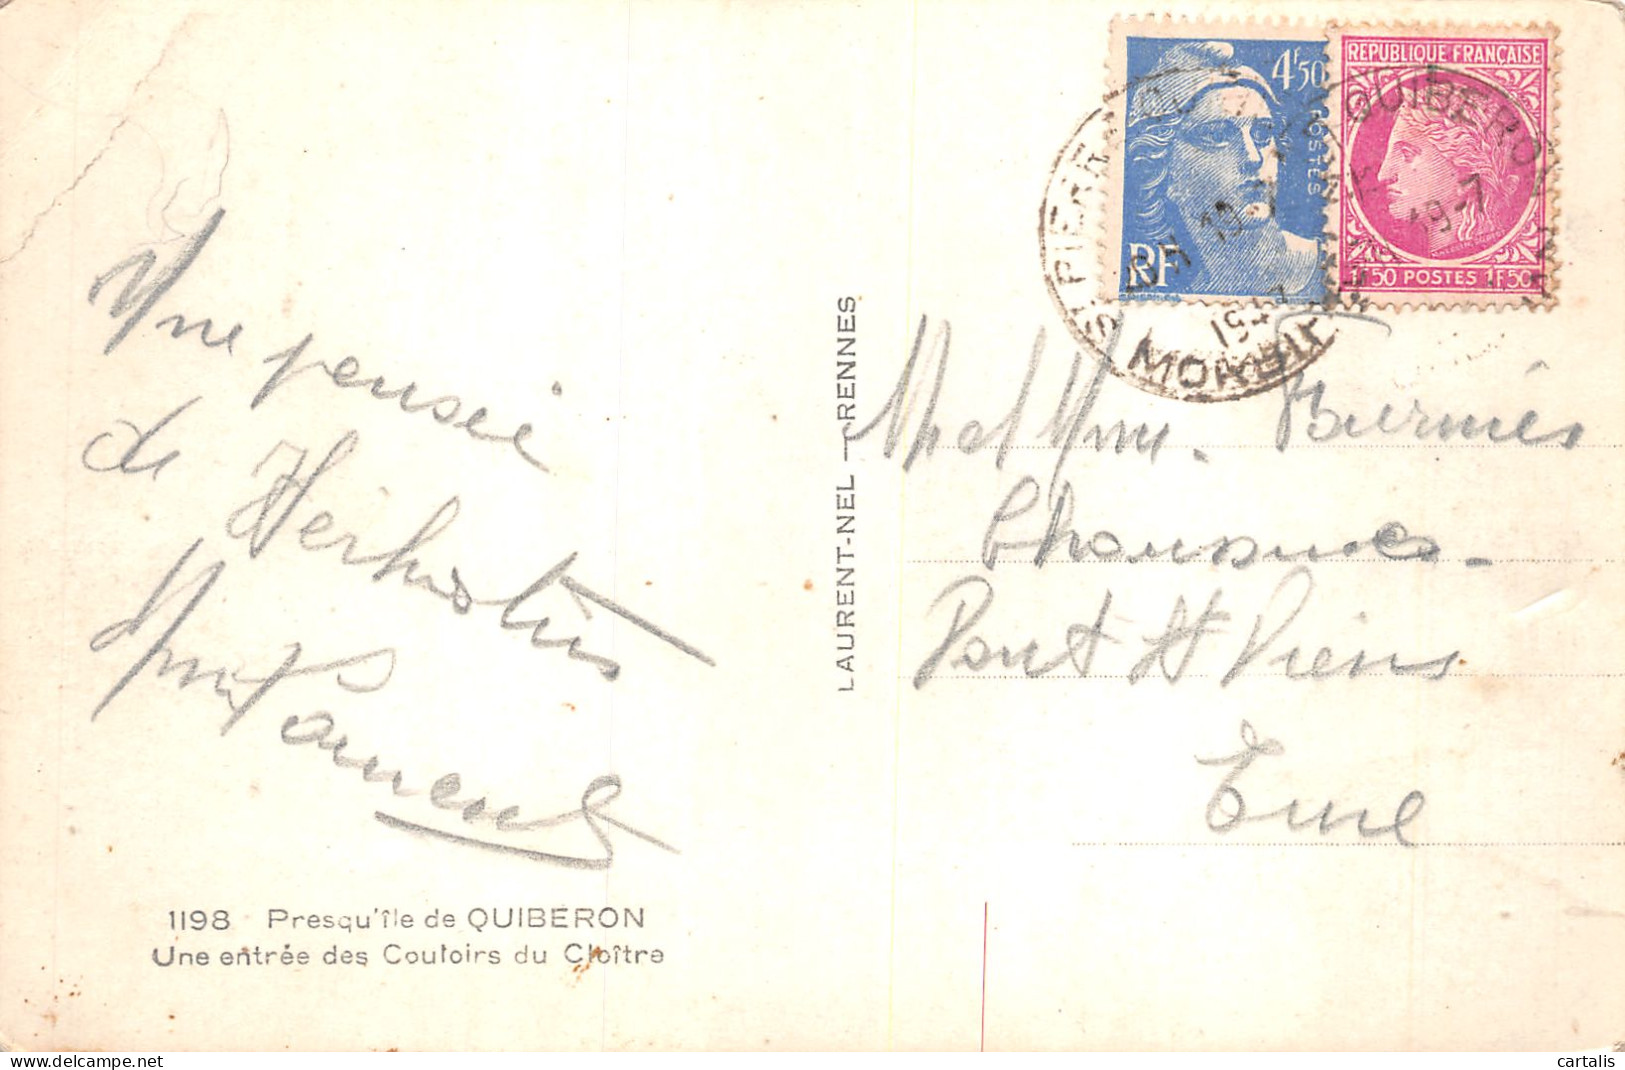 Une pensée
de Kerhostin
1198 Presqu'île de QUIBERON
Une entrée des Couloirs du Cloître
LAURENT-NEL — RENNES
4F50
POSTES
RF
REPUBLIQUE FRANÇAISE
1F50 POSTES 1F50
ST PIERRE QUIBERON
MORBIHAN
19-7
M et Mme
Chaussures -
Pont St Pierre
Eure
cartalis